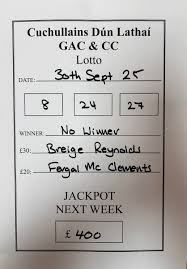 Cuchullains Dún Lathaí
GAC & CC
Lotto
DATE: 30th Sept 25
8 24 27
WINNER: No Winner
£30: Breige Reynolds
£20: Fergal Mc Clements
JACKPOT
NEXT WEEK
£ 400